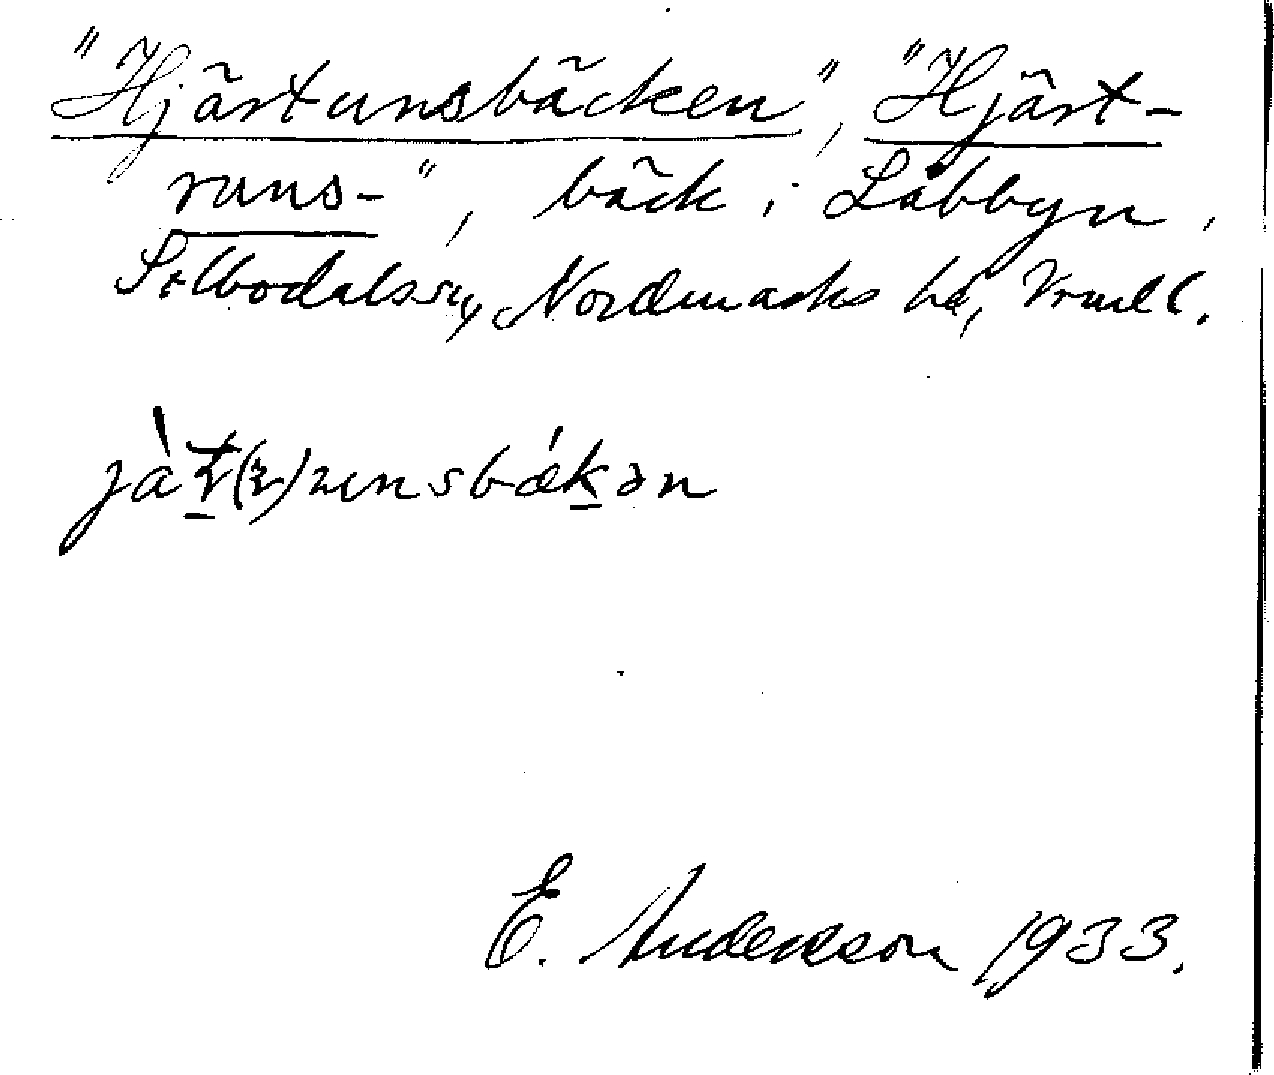 "Hjärtunsbäcken", "Hjärt-
runs-", bäck i Låbbyn,
Sillbodals sn, Nordmarks hd, Vrml.
E. Andersson 1933.